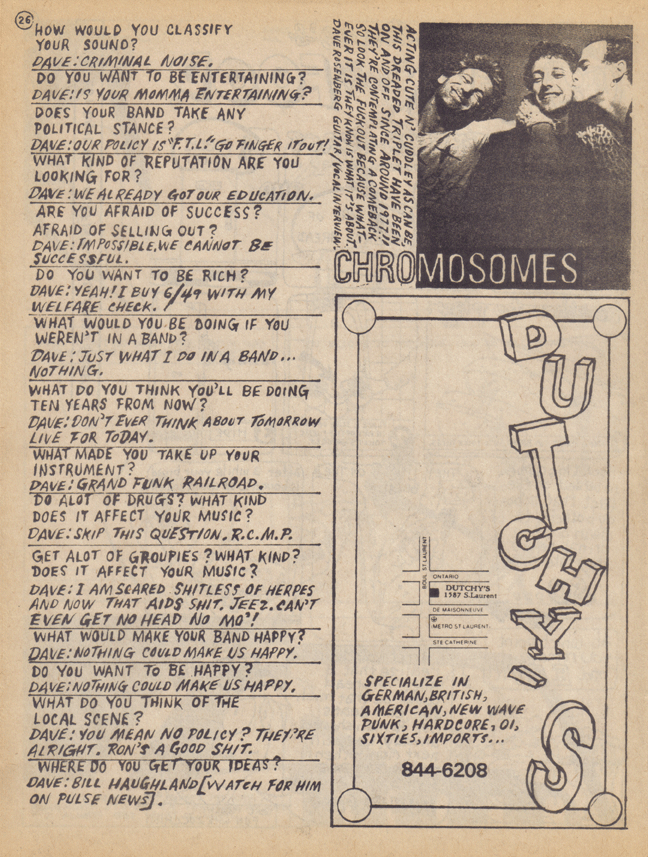 26
HOW WOULD YOU CLASSIFY
YOUR SOUND?
DAVE: CRIMINAL NOISE.
DO YOU WANT TO BE ENTERTAINING?
DAVE: IS YOUR MOMMA ENTERTAINING?
DOES YOUR BAND TAKE ANY
POLITICAL STANCE?
DAVE: OUR POLICY IS "F.T.L." GO FINGER IT OUT!
WHAT KIND OF REPUTATION ARE YOU
LOOKING FOR?
DAVE: WE ALREADY GOT OUR EDUCATION.
ARE YOU AFRAID OF SUCCESS?
AFRAID OF SELLING OUT?
DAVE: IMPOSSIBLE, WE CANNOT BE
SUCCESSFUL.
DO YOU WANT TO BE RICH?
DAVE: YEAH! I BUY 6/49 WITH MY
WELFARE CHECK.
WHAT WOULD YOU BE DOING IF YOU
WEREN'T IN A BAND?
DAVE: JUST WHAT I DO IN A BAND...
NOTHING.
WHAT DO YOU THINK YOU'LL BE DOING
TEN YEARS FROM NOW?
DAVE: DON'T EVER THINK ABOUT TOMORROW
LIVE FOR TODAY.
WHAT MADE YOU TAKE UP YOUR
INSTRUMENT?
DAVE: GRAND FUNK RAILROAD.
DO ALOT OF DRUGS? WHAT KIND
DOES IT AFFECT YOUR MUSIC?
DAVE: SKIP THIS QUESTION. R.C.M.P.
GET ALOT OF GROUPIES? WHAT KIND?
DOES IT AFFECT YOUR MUSIC?
DAVE: I AM SCARED SHITLESS OF HERPES
AND NOW THAT AIDS SHIT. JEEZ. CAN'T
EVEN GET NO HEAD NO MO'!
WHAT WOULD MAKE YOUR BAND HAPPY?
DAVE: NOTHING COULD MAKE US HAPPY.
DO YOU WANT TO BE HAPPY?
DAVE: NOTHING COULD MAKE US HAPPY.
WHAT DO YOU THINK OF THE
LOCAL SCENE?
DAVE: YOU MEAN NO POLICY? THEY'RE
ALRIGHT. RON'S A GOOD SHIT.
WHERE DO YOU GET YOUR IDEAS?
DAVE: BILL HAUGHLAND [WATCH FOR HIM
ON PULSE NEWS].
ACTING CUTE N' CUDDLEY AS CAN BE,
THIS DREADED TRIPLET HAVE BEEN
ON AND OFF SINCE AROUND 1977!!
THEY'RE CONTEMPLATING A COMEBACK
SO LOOK THE FUCK OUT BECAUSE WHAT-
EVER IT IS THEY KNOW IS WHAT IT'S ABOUT.
DAVE ROSENBERG GUITAR/VOCAL INTERVIEW.
CHROMOSOMES
DUTCHY'S
BOUL ST LAURENT
ONTARIO
DUTCHY'S
1587 S.Laurent
DE MAISONNEUVE
METRO ST LAURENT.
STE CATHERINE
SPECIALIZE IN
GERMAN, BRITISH,
AMERICAN, NEW WAVE
PUNK, HARDCORE, OI,
SIXTIES, IMPORTS...
844-6208